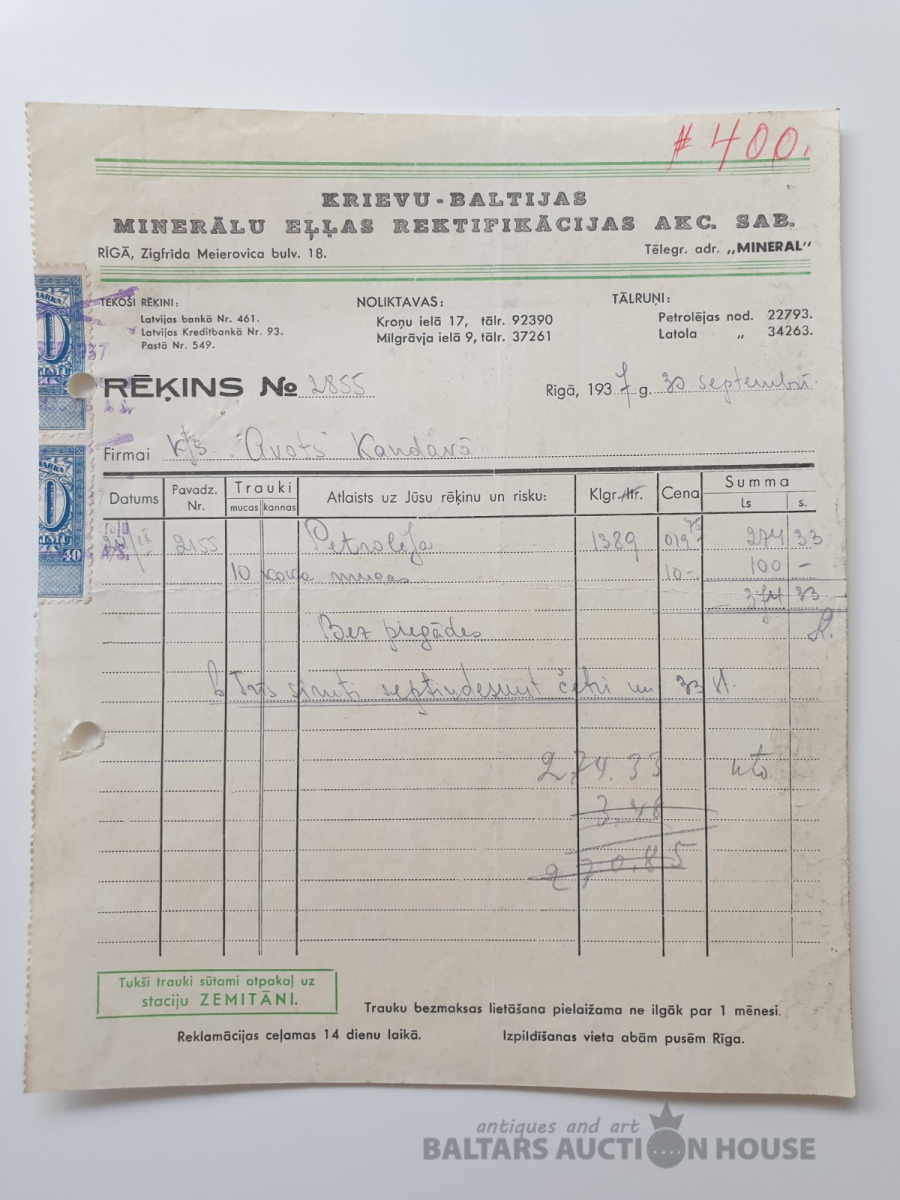 # 400.
KRIEVU-BALTIJAS
MINERĀLU EĻĻAS REKTIFIKĀCIJAS AKC. SAB.
RĪGĀ, Zigfrīda Meierovica bulv. 18.
Tēlegr. adr. „MINERAL"
TEKOŠI RĒĶINI:
Latvijas bankā Nr. 461.
Latvijas Kredītbankā Nr. 93.
Pastā Nr. 549.
NOLIKTAVAS:
Kroņu ielā 17, tālr. 92390
Milgrāvja ielā 9, tālr. 37261
TĀLRUŅI:
Petrolējas nod. 22793.
Latola „ 34263.
RĒĶINS № 2855
Rīgā, 1937 g. 30 septembrī.
Firmai k/s. "Avots" Kandavā
Datums Pavadz. Nr. Trauki mucas kannas Atlaists uz Jūsu rēķinu un risku: Klgr./ltr. Cena Summa Ls s.
2155 Petrolēja 1389 019 75 274 33
10 koka mucas 10.- 100 -
374 33
Bez piegādes
Trīs simti septiņdesmit četri un 33 st.
274.33
3.48
270.85
Tukši trauki sūtami atpakaļ uz
staciju ZEMITĀNI.
Trauku bezmaksas lietāšana pielaižama ne ilgāk par 1 mēnesi.
Reklamācijas ceļamas 14 dienu laikā.
Izpildīšanas vieta abām pusēm Rīga.
40
antiques and art
BALTARS AUCTION HOUSE